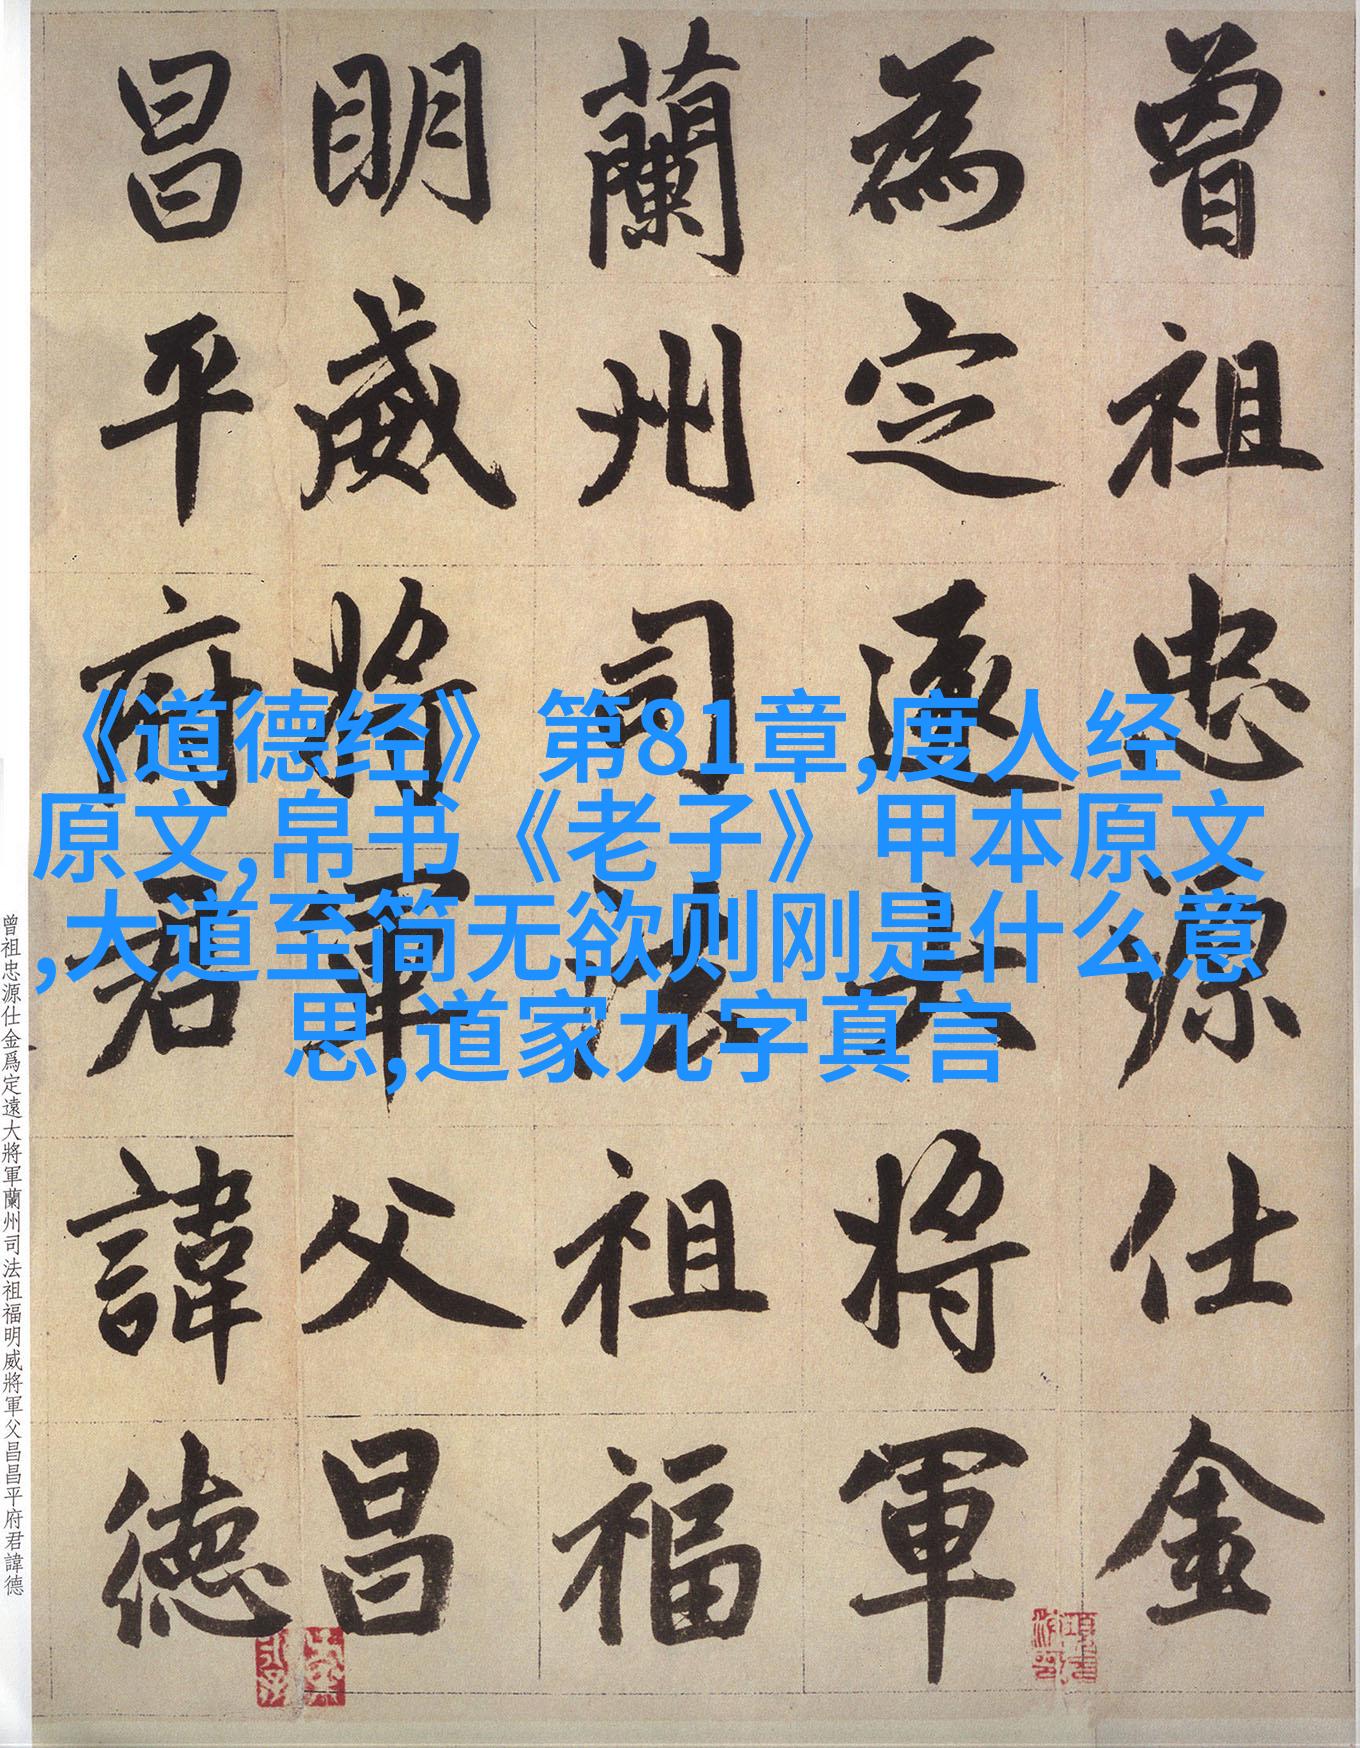 曾祖忠源仕金
為定遠大将軍
蘭州司法祖福
明威将軍父昌
昌平府君諱德
《道德经》第81章,度人经
原文,帛书《老子》甲本原文
,大道至简无欲则刚是什么意
思,道家九字真言
曾祖忠源仕金爲定遠大將軍蘭州司法祖福明威將軍父昌昌平府君諱德